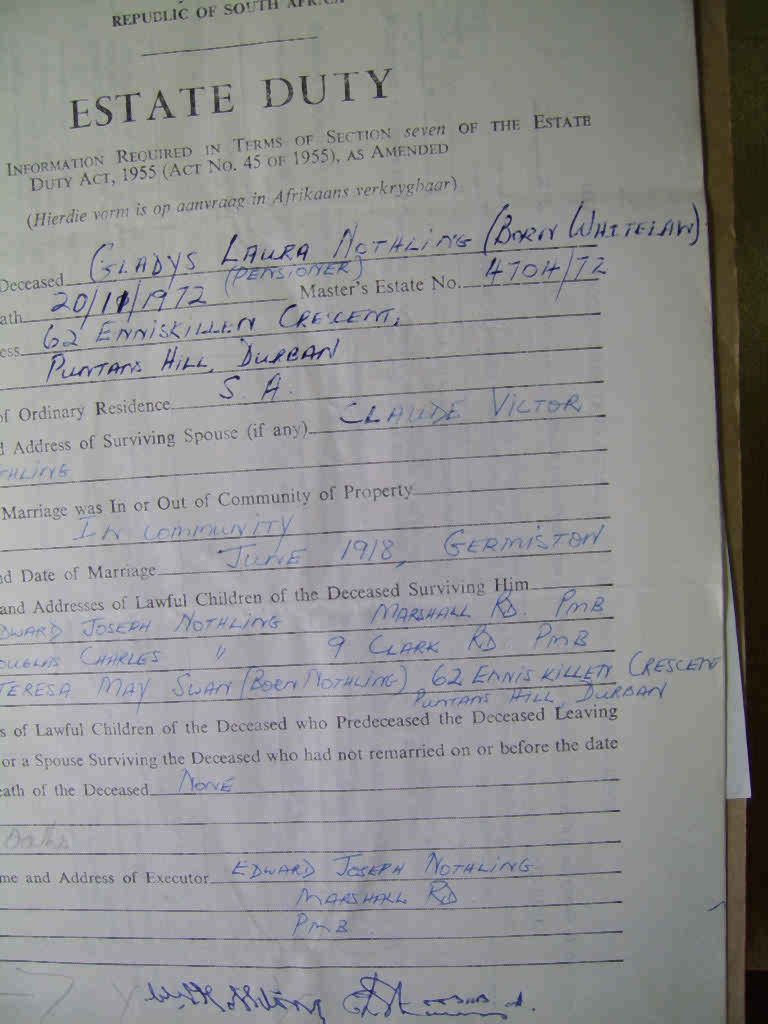 REPUBLIC OF SOUTH AFRICA
ESTATE DUTY
INFORMATION REQUIRED IN TERMS OF SECTION seven OF THE ESTATE
DUTY ACT, 1955 (ACT NO. 45 OF 1955), AS AMENDED
(Hierdie vorm is op aanvraag in Afrikaans verkrygbaar)
Deceased GLADYS LAURA NOTHLING (BORN WHITELAW)
(PENSIONER)
ath 20/11/1972 Master's Estate No. 4704/72
ess 62 ENNISKILLEN CRESCENT,
PUNTANS HILL, DURBAN
of Ordinary Residence S. A.
d Address of Surviving Spouse (if any) CLAUDE VICTOR
THLING
Marriage was In or Out of Community of Property
IN COMMUNITY
nd Date of Marriage JUNE 1918, GERMISTON
and Addresses of Lawful Children of the Deceased Surviving Him
DWARD JOSEPH NOTHLING MARSHALL RD. PMB
OUGLAS CHARLES " 9 CLARK RD PMB
TERESA MAY SWAN (BORN NOTHLING) 62 ENNISKILLEN CRESCENT
PUNTANS HILL, DURBAN
s of Lawful Children of the Deceased who Predeceased the Deceased Leaving
or a Spouse Surviving the Deceased who had not remarried on or before the date
eath of the Deceased NONE
me and Address of Executor EDWARD JOSEPH NOTHLING
MARSHALL RD
PMB